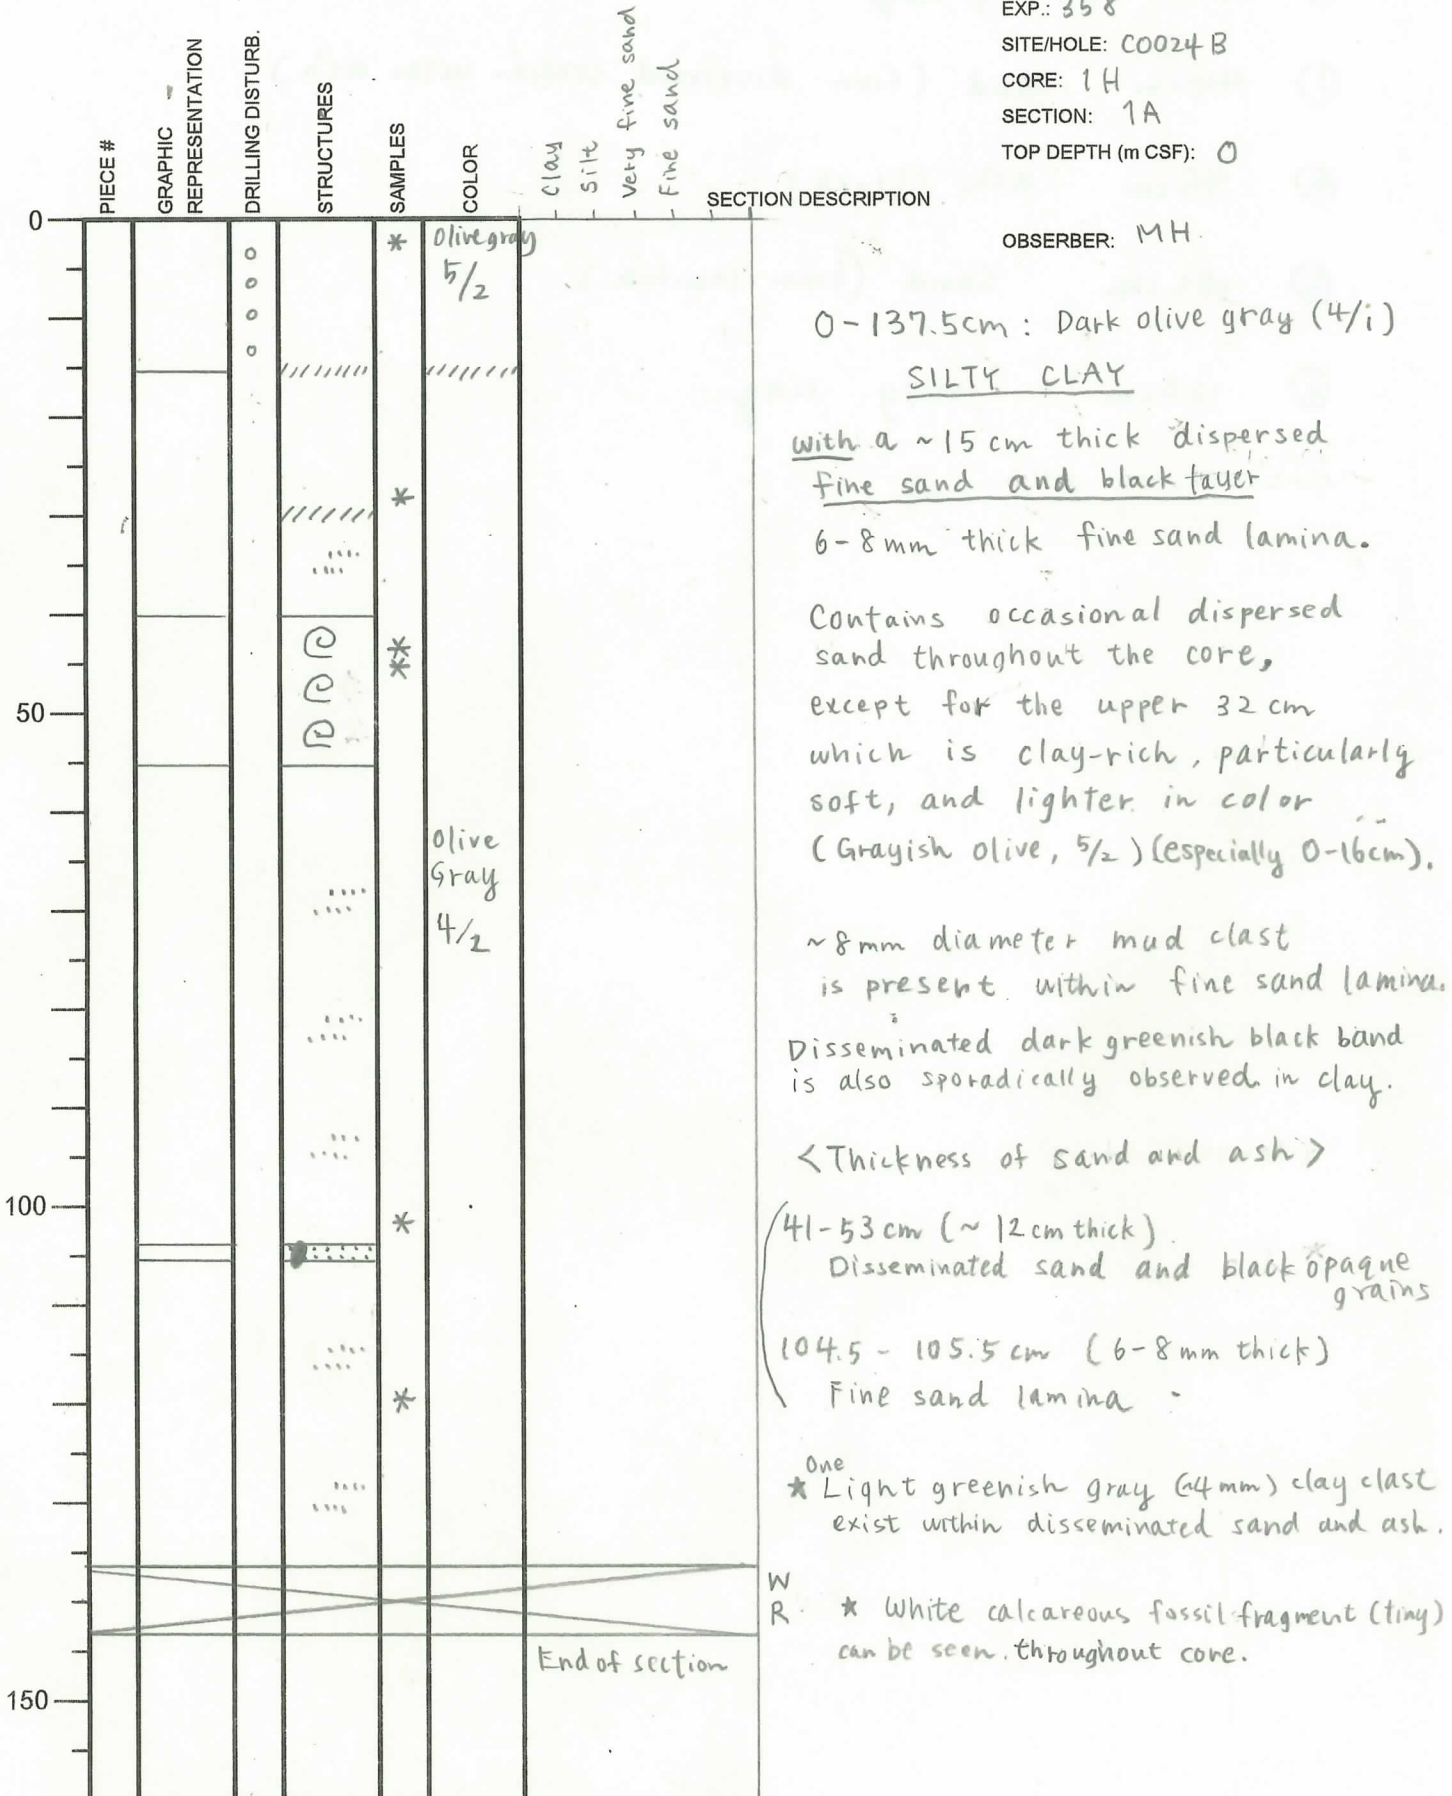 EXP.: 358
SITE/HOLE: C0024B
CORE: 1H
SECTION: 1A
TOP DEPTH (m CSF): 0
OBSERBER: MH
PIECE #
GRAPHIC REPRESENTATION
DRILLING DISTURB.
STRUCTURES
SAMPLES
COLOR
Clay
Silt
Very fine sand
Fine sand
SECTION DESCRIPTION
0
50
100
150
Olive gray
5/2
Olive
Gray
4/2
0-137.5cm: Dark olive gray (4/1)
SILTY CLAY
with a ~15 cm thick dispersed
fine sand and black layer
6-8mm thick fine sand lamina.
Contains occasional dispersed
sand throughout the core,
except for the upper 32 cm
which is clay-rich, particularly
soft, and lighter in color
(Grayish olive, 5/2) (especially 0-16cm).
~8mm diameter mud clast
is present within fine sand lamina.
Disseminated dark greenish black band
is also sporadically observed in clay.
<Thickness of sand and ash>
41-53 cm (~12 cm thick)
Disseminated sand and black opaque
grains
104.5 - 105.5 cm (6-8mm thick)
Fine sand lamina
One
★ Light greenish gray (~4mm) clay clast
exist within disseminated sand and ash.
W
R
★ White calcareous fossil fragment (tiny)
can be seen throughout core.
End of section